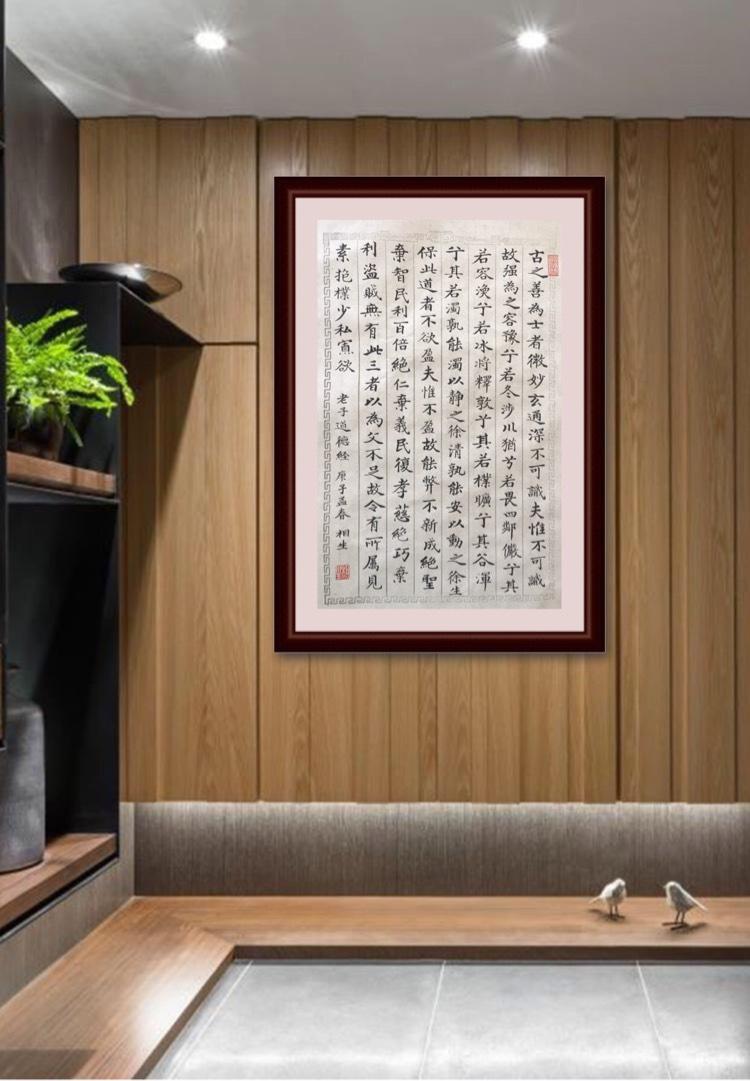 古之善為士者微妙玄通深不可識夫惟不可識
故强為之容豫兮若冬涉川猶兮若畏四鄰儼兮其
若容渙兮若冰將釋敦兮其若樸曠兮其谷渾
兮其若濁孰能濁以静之徐清孰能安以動之徐生
保此道者不欲盈夫惟不盈故能弊不新成絕聖
棄智民利百倍絕仁棄義民復孝慈絕巧棄
利盜賊無有此三者以為文不足故令有所屬見
素抱樸少私寡欲 老子道德經 庚子孟春 相生